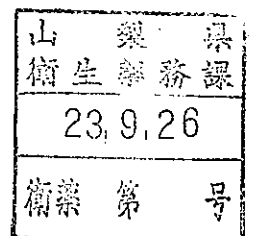 山梨県
衛生薬務課
23.9.26
衛薬第 号